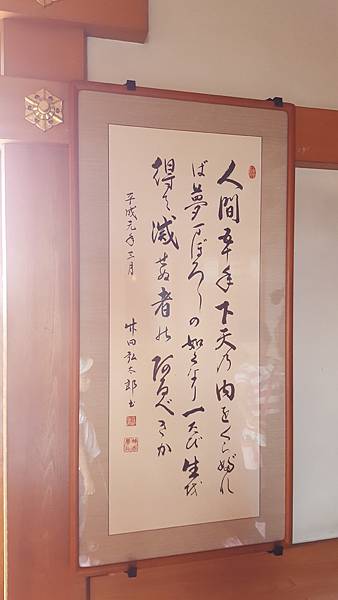 人間五十年下天乃内をくらぶれ
ば夢まぼろしの如くなり一たび生を
得て滅せぬ者のあるべきか
平成元年三月
竹田弘太郎書